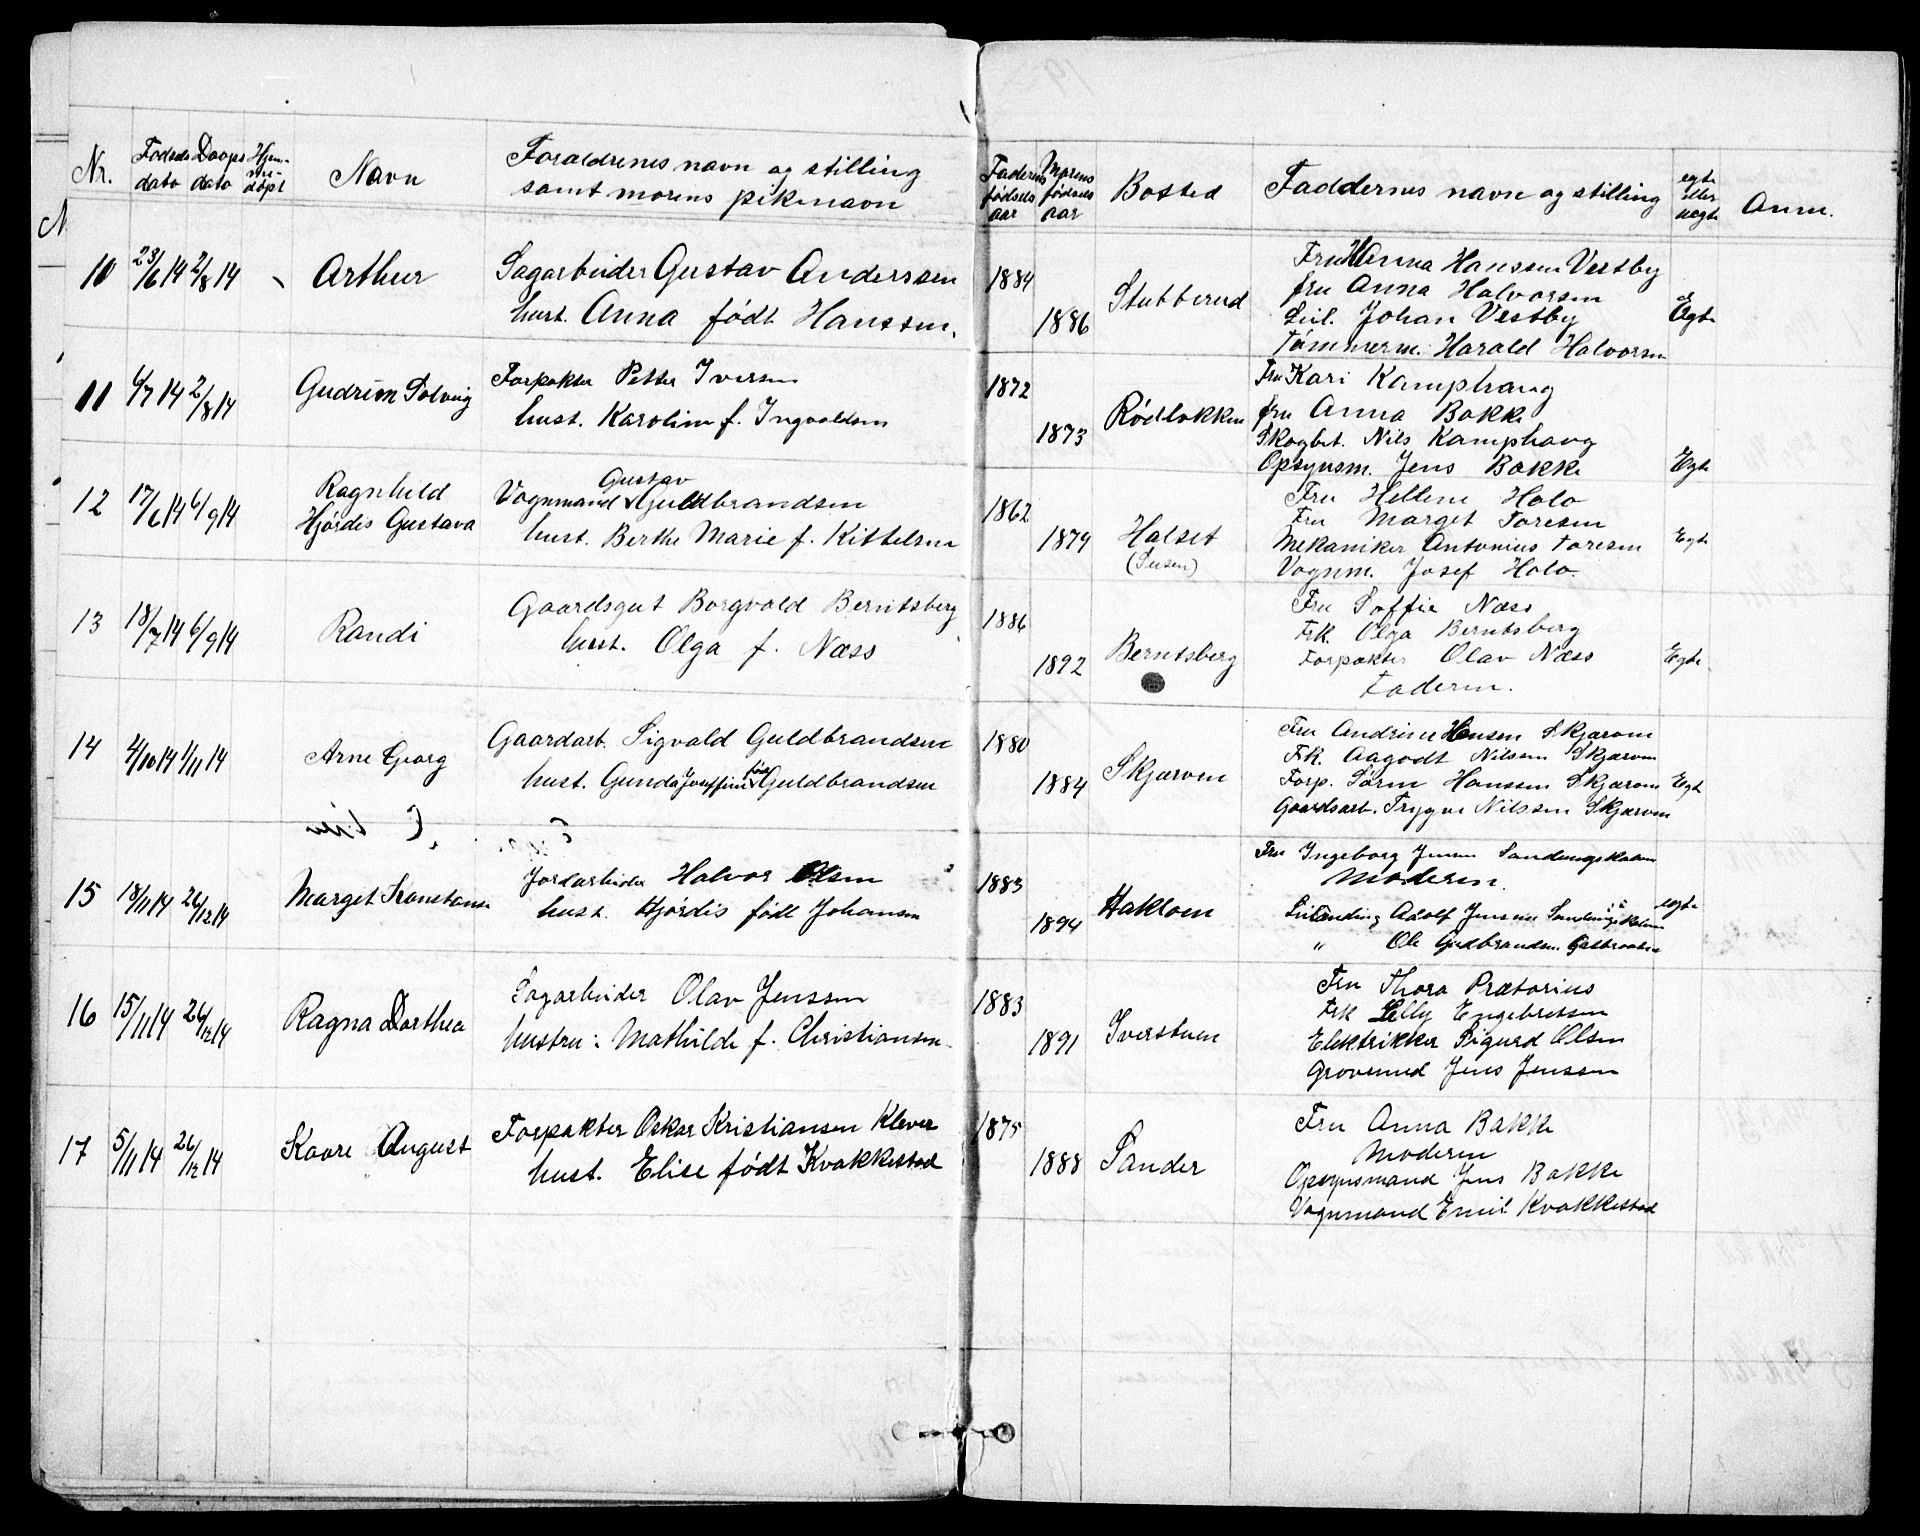 Nr. Fødsels dato Daaps dato Hjemmedøpt Navn Forældrenes navn og stilling samt morens pikenavn Faderens fødselsaar Morens fødselsaar Bosted Faddernes navn og stilling egte eller uegte Anm.
10 23/6 14 2/8 14 Arthur Sagarbeider Gustav Anderssen 1884 Fru Hanna Hanssen Vestby
hust. Anna født Hanssen. 1886 Stubberud fru Anna Halvorsen Egte
Johan Vestby
Tømmerm. Harald Halvorsen
11 4/7 14 2/8 14 Gudrun Solveig Forpakter Petter Iversen 1872 Fru Kari Kamphaug
hust. Karoline f. Ingvaldsen 1873 Rødløkken fru Anna Bakke
Skogbet. Nils Kamphaug
Opsynsm. Jens Bakke Egte
12 17/6 14 6/9 14 Ragnhild Hjørdis Gustava Vognmand Gustav Guldbrandsen 1862 Fru Hellene Holo
hust. Berthe Marie f. Kittelsen 1879 Halset Fru Marget Toresen Egte
Mekaniker Antonius Toresen
Vognm. Josef Holo.
13 18/7 14 6/9 14 Randi Gaardsgut Borgvald Berntsberg 1886 Fru Soffie Næss
hust. Olga f. Næss 1892 Berntsberg Frk. Olga Berntsberg
Forpakter Olav Næss Egte
Faderen.
14 4/10 14 1/11 14 Arne Georg Gaardarb. Sigvald Guldbrandsen 1880 Fru Andrine Hansen Skjærven
hust. Gunda Joseffine født Guldbrandsen 1884 Skjærven Frk. Aagodt Nilsen Skjærven
Forp. Søren Hanssen Skjærven Egte
Gaardsarb. Trygve Nilssen Skjærven
15 18/11 14 26/12 14 Marget Konstanse Jordarbeider Halvor Olsen 1883 Fru Ingeborg Jensen
hust. Hjørdis født Johansen 1894 Haktoen Moderen. uegte
Adolf Jensen
" Ole Gudbrandsen
16 15/11 14 26/12 14 Ragna Dorthea Sagarbeider Olav Jenssen 1883 Fru Thora Prætorius
hustru: Mathilde f. Christiansen. 1891 Iverstuen Frk Lelly Engebretsen
Elektrikker Sigurd Olsen
Grovsmed Jens Jenssen
17 5/11 14 26/12 14 Kaare August Forpakter Oskar Kristiansen Klever 1875 Fru Anna Bakke
hust. Elise født Kvakkestad 1888 Sander Moderen
Opsynsmand Jens Bakke
Vognmand Emil Kvakkestad